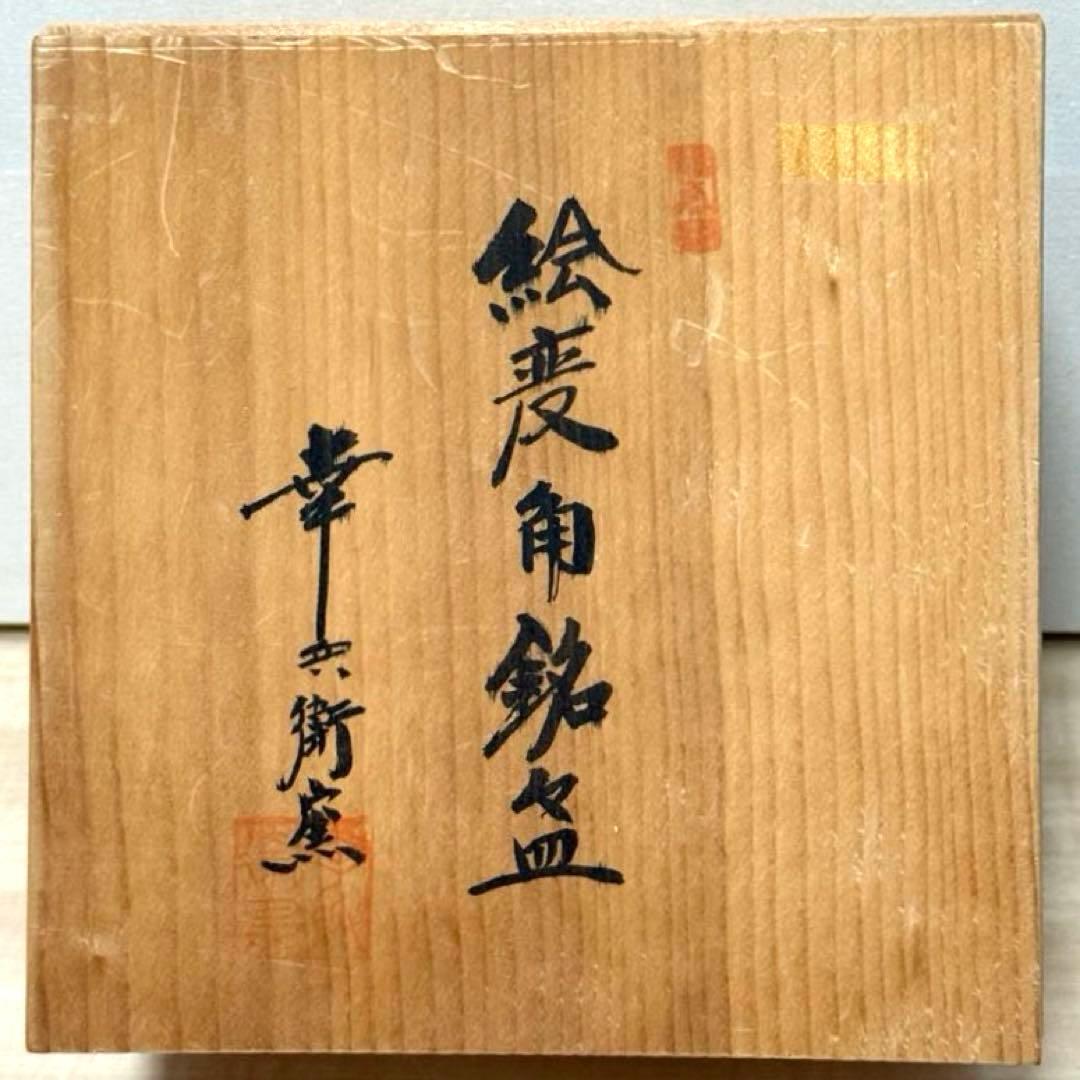 絵変角銘々皿
幸兵衛窯